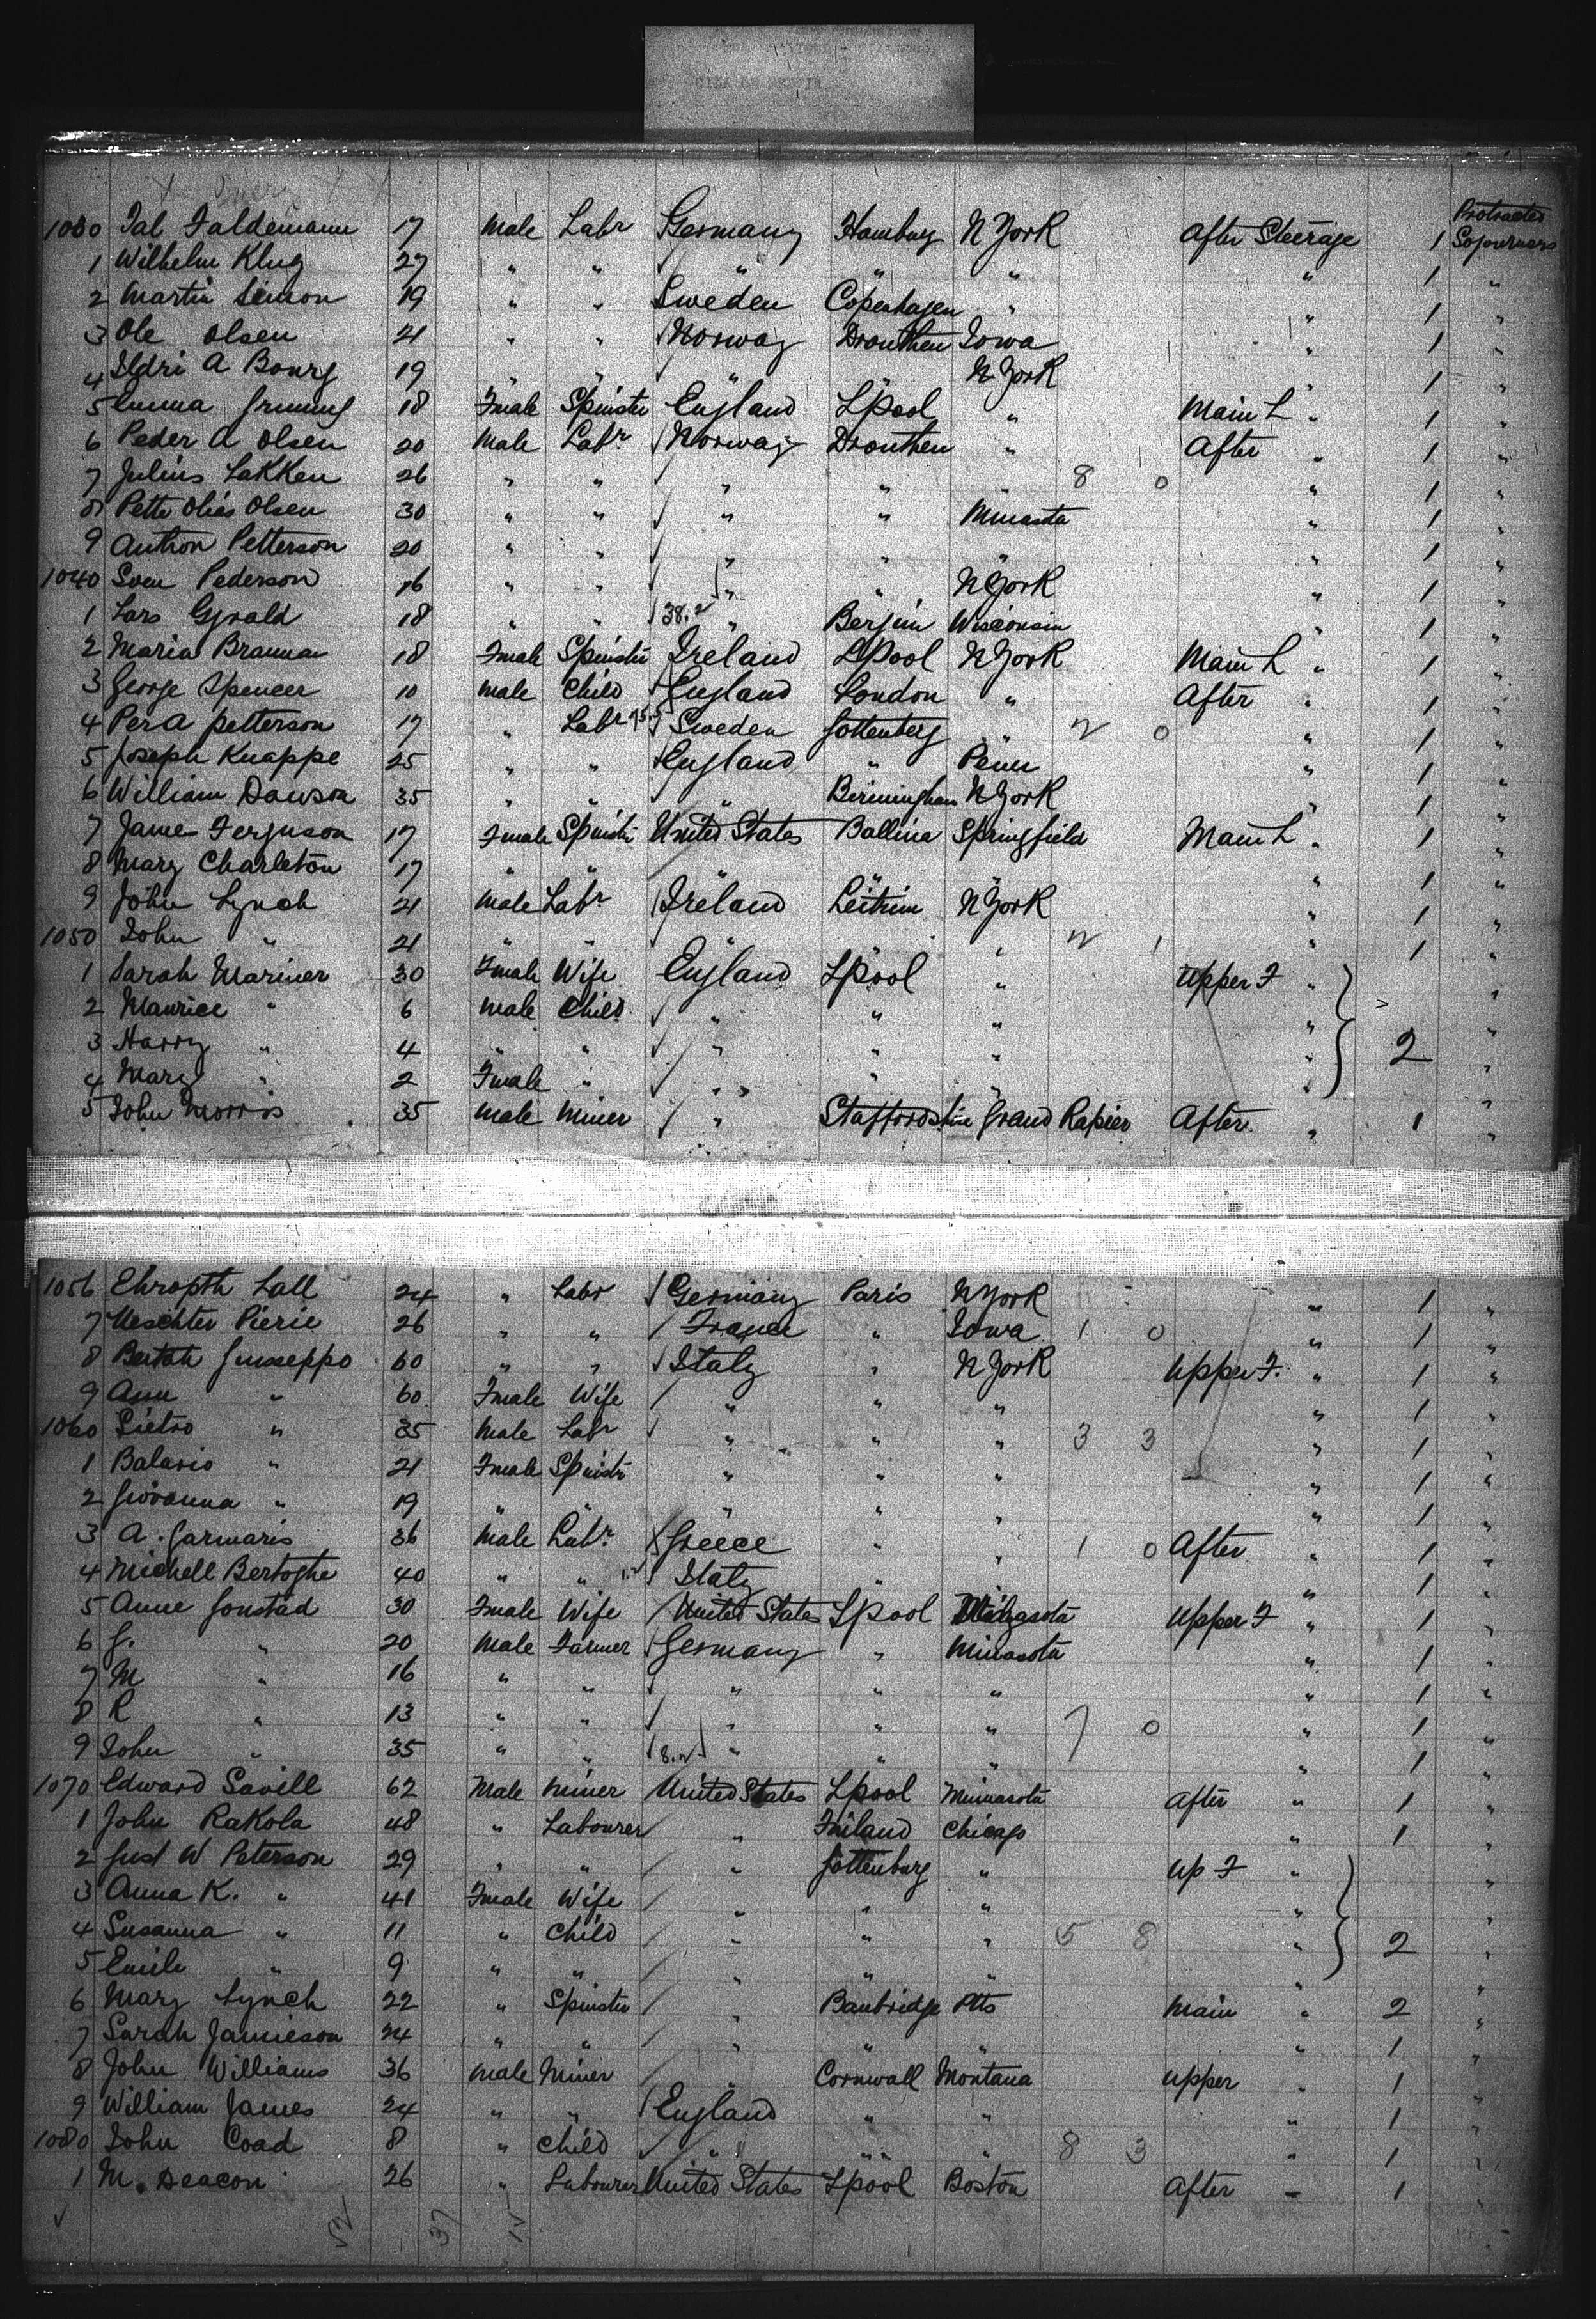 Protracted
1030 Jal Faldemann 17 Male Labr Germany Hamburg N York After Steerage 1 Sojourners
1 Wilhelm Klug 27 " " " " " " 1 "
2 Martin Simon 19 " " Sweden Copenhagen " " 1 "
3 Ole Olsen 21 " " Norway Dronthen Iowa " 1 "
4 Ildri A Bourg 19 " " " " N York " 1 "
5 Emma 18 Fmale Spinster England Lpool " Main L " 1 "
6 Peder A Olsen 20 Male Labr Norway Dronthen " After " 1 "
7 Julius Lakken 26 " " " " " 8 0 " 1 "
8 Pette Olies Olsen 30 " " " " Minasota " 1 "
9 Anthon Petterson 20 " " " " " " 1 "
1040 Sven Pederson 16 " " " " N York " 1 "
1 Lars Gyvald 18 " " " Berjin Wisconsin " 1 "
2 Maria Brannan 18 Fmale Spinster Ireland Lpool N York Main L " 1 "
3 George Spencer 10 Male Child England London " After " 1 "
4 Per A Petterson 17 " Labr Sweden Gottenberg " 2 0 " 1 "
5 Joseph Knappe 25 " " England " Penn " 1 "
6 William Dawson 35 " " " Birmingham N York " 1 "
7 Jane Ferguson 17 Fmale Spinster United States Ballina Springfield Main L " 1 "
8 Mary Charleton 17 " " " " " " 1 "
9 John Lynch 21 Male Labr Ireland Leitrim N York " 1 "
1050 John " 21 " " " " " 2 1 " 1 "
1 Sarah Mariner 30 Fmale Wife England Lpool " Upper F " "
2 Maurice " 6 Male Child " " " " "
3 Harry " 4 " " " " " " 2 "
4 Mary " 2 Fmale " " " " " "
5 John Morris 35 Male Miner " Staffordshire Grand Rapier After " 1 "
1056 Ehropth Lall 24 " Labr Germany Paris N York " 1 "
7 Meschter Pierie 26 " " France " Iowa 1 0 " 1 "
8 Bertoh Giuseppo 60 " " Italy " N York Upper F. " 1 "
9 Ann " 60 Fmale Wife " " " " 1 "
1060 Pietro " 35 Male Labr " " " 3 3 " 1 "
1 Balario " 21 Fmale Spinstr " " " " 1 "
2 Giovanna " 19 " " " " " " 1 "
3 A. Garmaris 36 Male Labr Greece " " 1 0 After " 1 "
4 Michell Bertoghe 40 " " Italy " " 1 "
5 Anne Gonstad 30 Fmale Wife United States Lpool Upper F " 1 "
6 G. " 20 Male Farmer Germany " Minasota " 1 "
7 M " 16 " " " " " " 1 "
8 R " 13 " " " " " 7 0 " 1 "
9 John " 35 " " " " " " 1 "
1070 Edward Savill 62 Male Miner United States Lpool Minnasota After " 1 "
1 John Rakola 48 " Labourer " Finland Chicago " 1 "
2 Gust W Peterson 29 " " " Gottenburg " Up F " "
3 Anna K. " 41 Fmale Wife " " " " "
4 Susanna " 11 " Child " " " 5 8 " 2 "
5 Emile " 9 " " " " " " "
6 Mary Lynch 22 " Spinster " Banbridge Main " 2 "
7 Sarah Jamieson 24 " " " " " " 1 "
8 John Williams 36 Male Miner " Cornwall Montana Upper " 1 "
9 William James 24 " " England " " " 1 "
1080 John Coad 8 " Child " " " 8 3 " 1 "
1 M. Deacon 26 " Labourer United States Lpool Boston After " 1 "
37